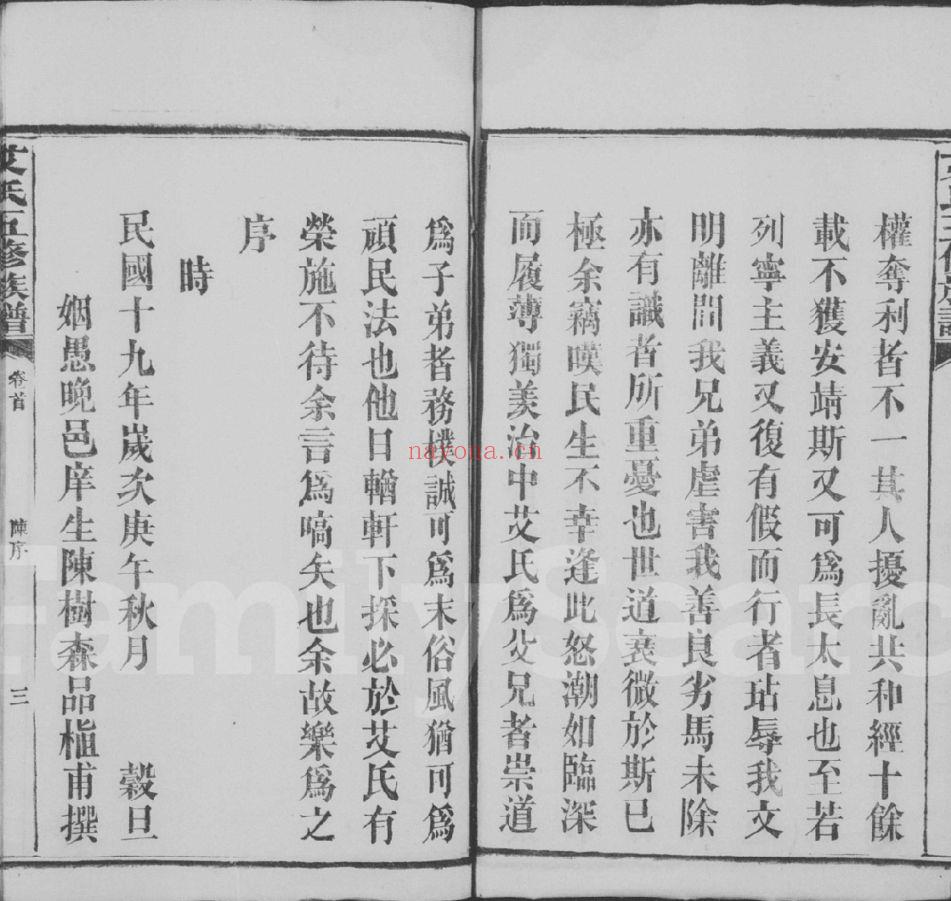 權奪利者不一其人擾亂共和經十餘
載不獲安靖斯又可爲長太息也至若
列寧主義又復有假而行者玷辱我文
明離間我兄弟虐害我善良劣馬未除
亦有識者所重憂也世道衰微於斯已
極余竊嘆民生不幸逢此怒潮如臨深
而履薄獨羨治中艾氏爲父兄者崇道
爲子弟者務樸誠可爲末俗風猶可爲
頑民法也他日輶軒下採必於艾氏有
榮施不待余言爲嚆矢也余故樂爲之
序
時
民國十九年歲次庚午秋月 穀旦
姻愚晚邑庠生陳樹森品植甫撰
艾氏五修族譜 卷首 陳序 三
nayona.cn
FamilySearch